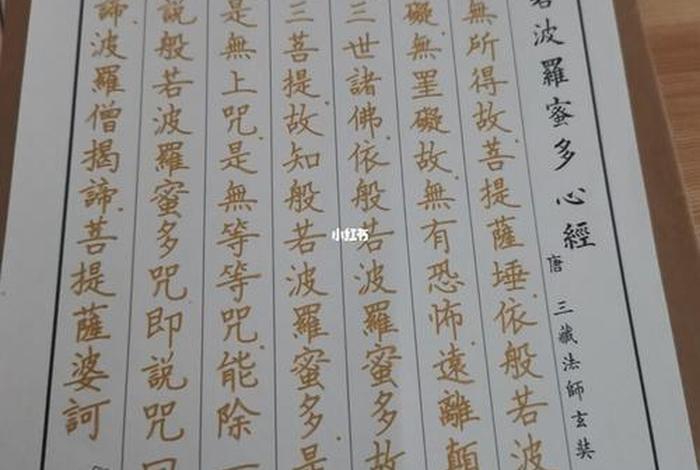 若波羅蜜多心經
唐 三藏法師玄奘
無所得故.菩提薩埵.依般若波
礙.無罣礙故.無有恐怖.遠離顛
三世諸佛.依般若波羅蜜多故
三菩提.故知般若波羅蜜多.是
是無上咒.是無等等咒.能除一
說般若波羅蜜多咒.即說咒曰
諦.波羅僧揭諦.菩提薩婆訶
小红书